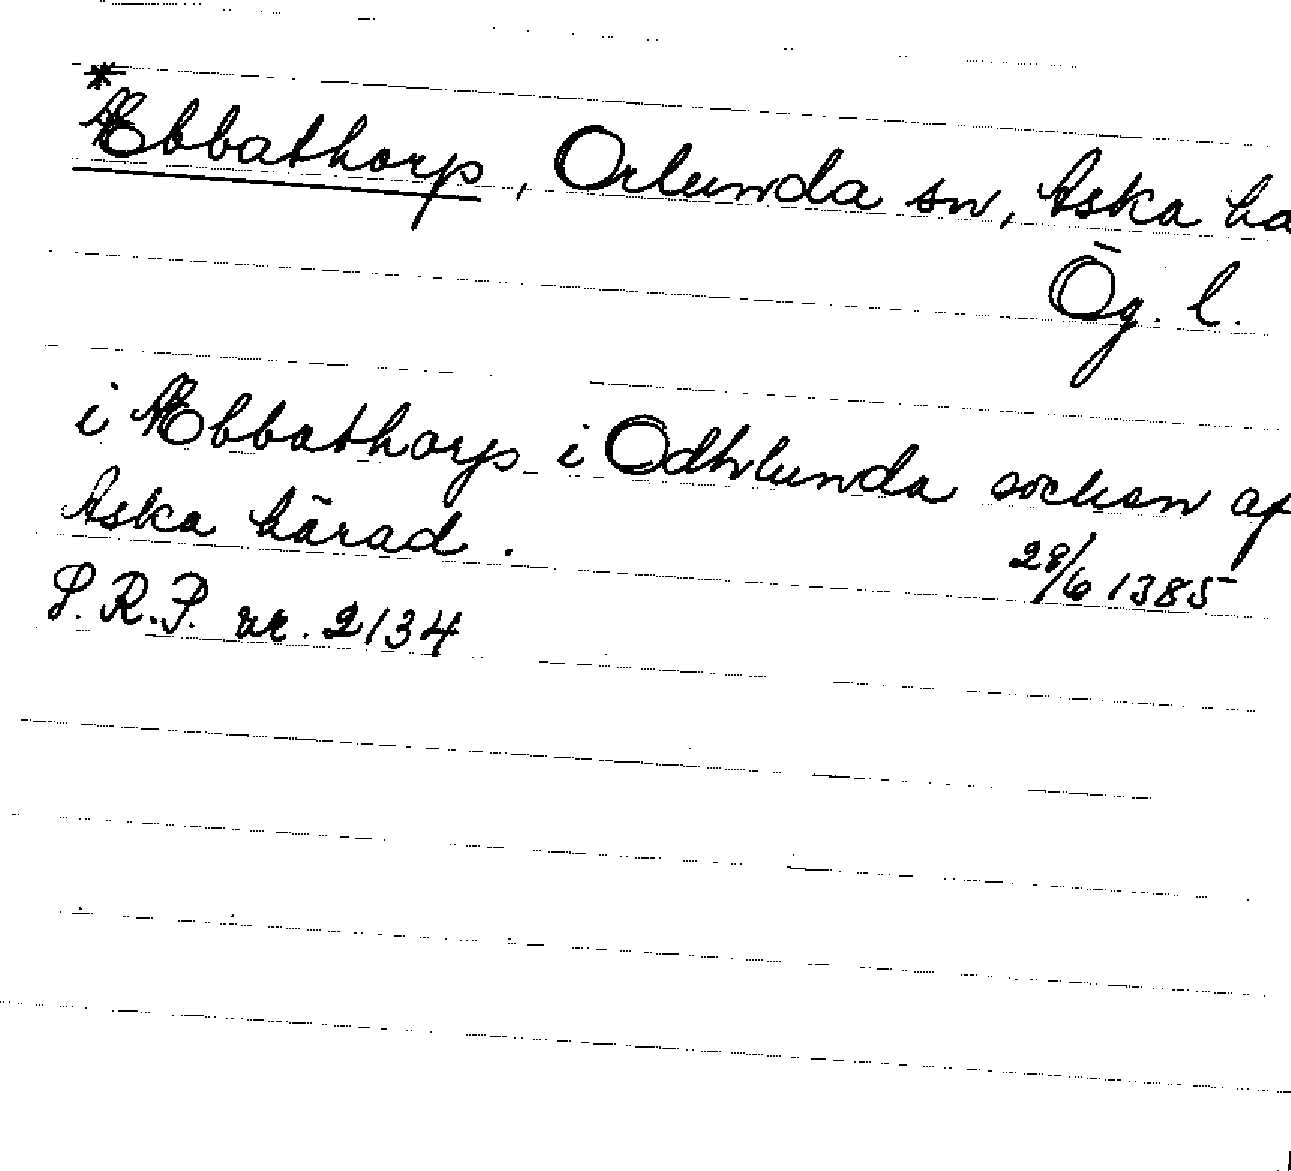 *Æbbathorp, Orlunda sn, Aska hä
Ög. l.
i Æbbathorp i Odhrlunda sochen af
Aska härad.
28/6 1385
S.R.P. nr. 2134